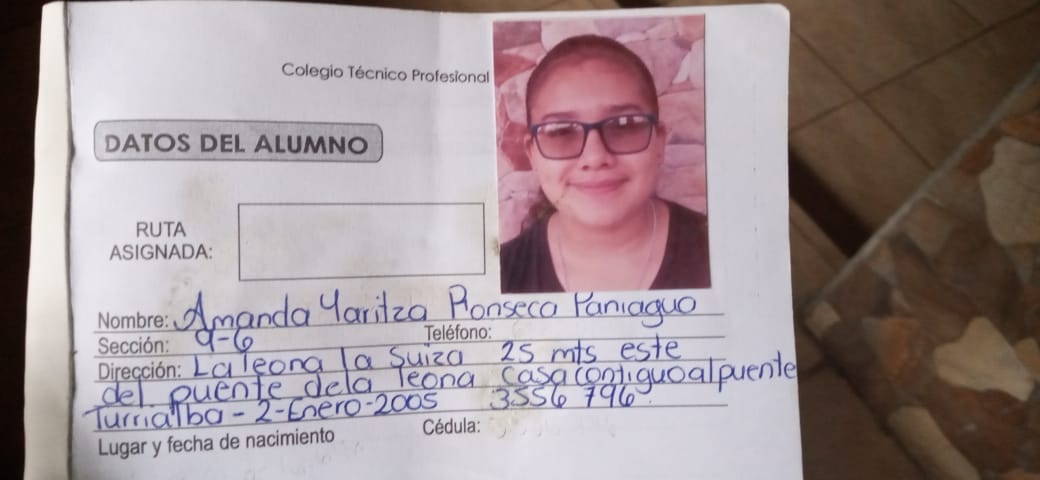 Colegio Técnico Profesional
DATOS DEL ALUMNO
RUTA
ASIGNADA:
Nombre: Amanda Yaritza Fonseca Paniagua
Sección: 9-6 Teléfono:
Dirección: La leona la Suiza 25 mts este
del puente dela leona casa contiguo al puente
Turrialba - 2-Enero-2005 3556 796
Lugar y fecha de nacimiento Cédula: